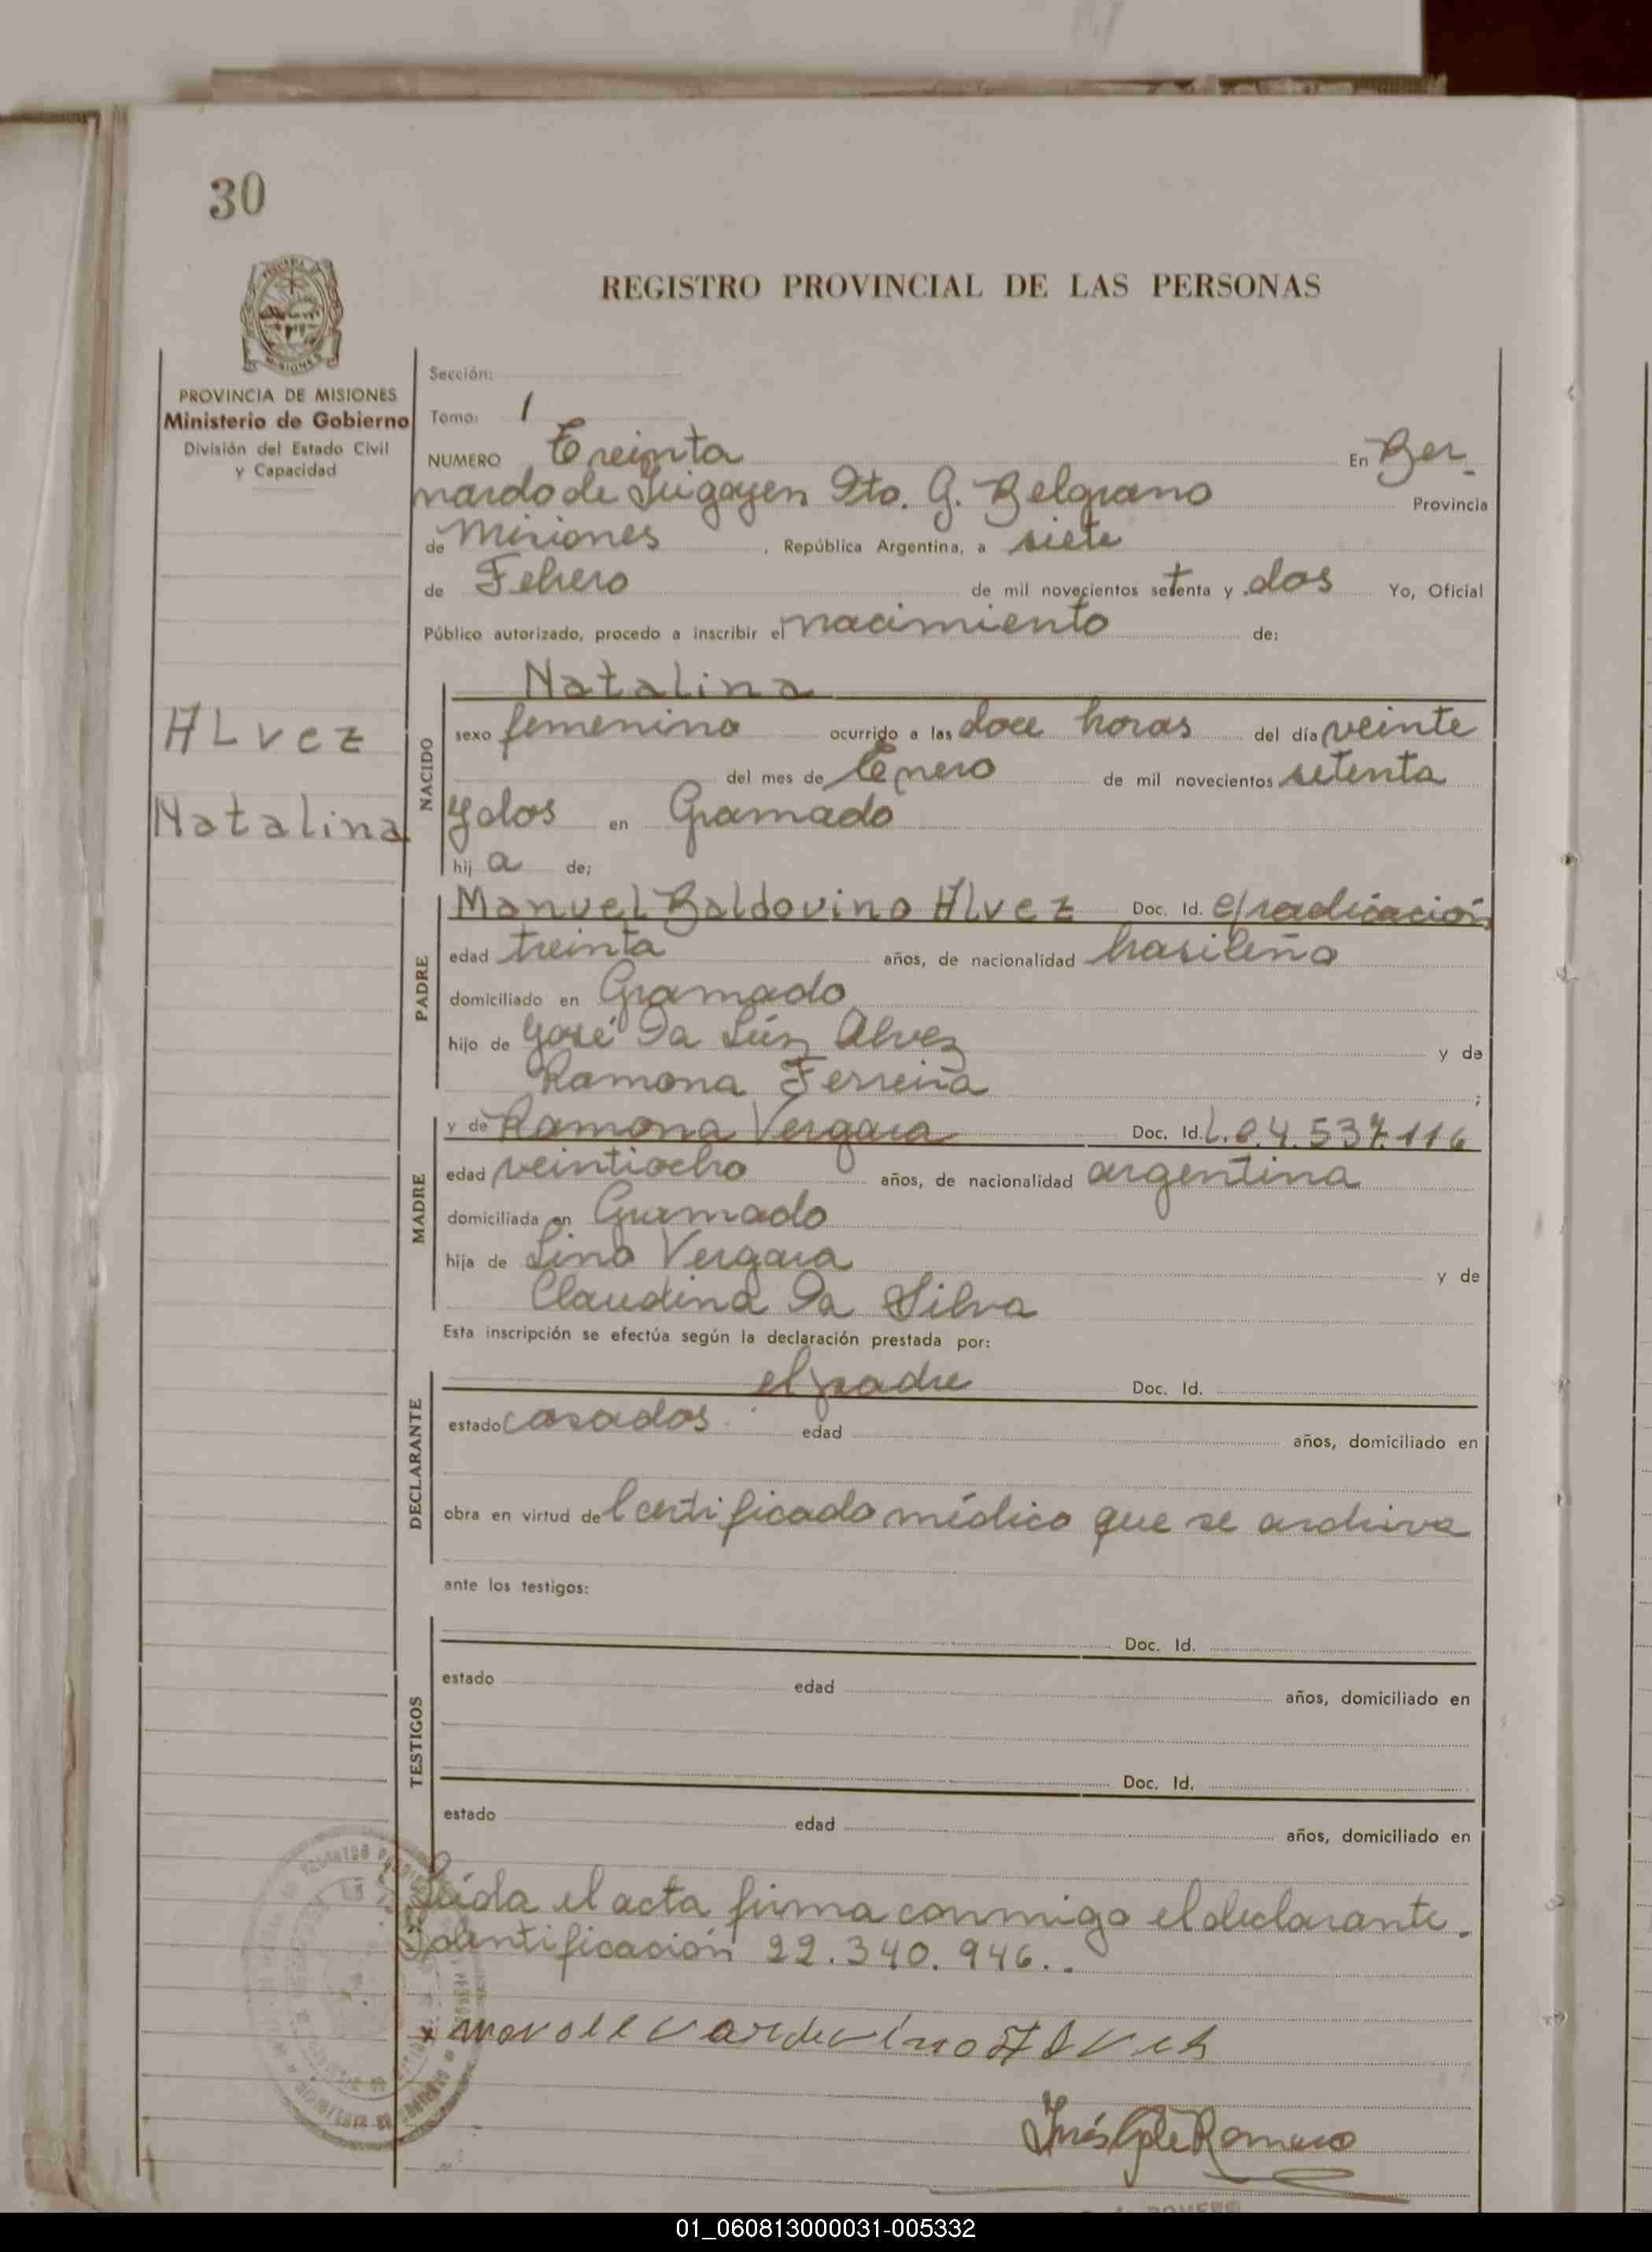 30
REGISTRO PROVINCIAL DE LAS PERSONAS
PROVINCIA DE MISIONES
Ministerio de Gobierno
División del Estado Civil
y Capacidad
ALvez
Natalina
Sección:
Tomo: 1
NUMERO Treinta En Ber-
nardo de Irigoyen Dto. G. Belgrano Provincia
de Misiones, República Argentina, a siete
de Febrero de mil novecientos setenta y dos Yo, Oficial
Público autorizado, procedo a inscribir el nacimiento de:
NACIDO
Natalina
sexo femenino ocurrido a las doce horas del día veinte
del mes de Enero de mil novecientos setenta
y dos en Gramado
hij a de;
PADRE
Manuel Baldovino Alvez Doc. Id. c/radicación
edad treinta años, de nacionalidad brasileña
domiciliado en Gramado
hijo de José Da Lúz Alvez y de
Ramona Ferreira ;
MADRE
y de Ramona Vergara Doc. Id. L.C.4.537.116
edad veintiocho años, de nacionalidad argentina
domiciliada en Gramado
hija de Lino Vergara y de
Claudina Da Silva
Esta inscripción se efectúa según la declaración prestada por:
DECLARANTE
el padre Doc. Id.
estado casados edad años, domiciliado en
obra en virtud del certificado médico que se archiva
ante los testigos:
TESTIGOS
Doc. Id.
estado edad años, domiciliado en
Doc. Id.
estado edad años, domiciliado en
Leída el acta firma conmigo el declarante.
Identificación 22.340.946..
Romero
01_060813000031-005332